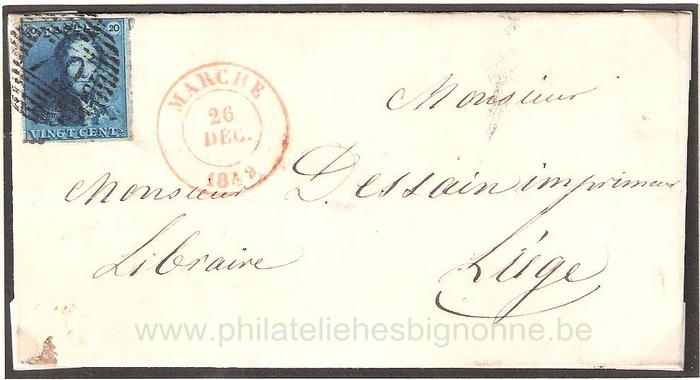 POSTES 20
VINGT CENTS
MARCHE
26
DÉC.
1849
Monsieur
Monsieur Dessain imprimeur
Libraire Liége
www.philateliehesbignonne.be